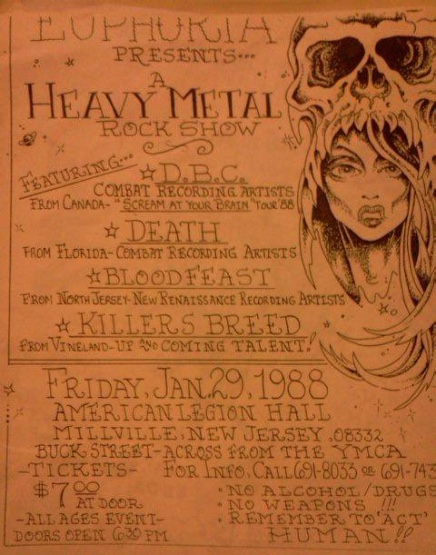 EUPHORIA
PRESENTS...
A
HEAVY METAL
ROCK SHOW
FEATURING...
☆ D.B.C.
COMBAT RECORDING ARTISTS
FROM CANADA- "SCREAM AT YOUR BRAIN" TOUR '88
☆ DEATH
FROM FLORIDA- COMBAT RECORDING ARTISTS
☆ BLOODFEAST
FROM NORTH JERSEY- NEW RENAISSANCE RECORDING ARTISTS
☆ KILLERS BREED
FROM VINELAND- UP AND COMING TALENT!
FRIDAY, JAN. 29, 1988
AMERICAN LEGION HALL
MILLVILLE, NEW JERSEY, 08332
BUCK STREET- ACROSS FROM THE YMCA
-TICKETS-
$7.00
AT DOOR
-ALL AGES EVENT-
DOORS OPEN 6:30 PM
FOR INFO. CALL 691-8033 OR 691-743
• NO ALCOHOL/DRUGS
• NO WEAPONS !!!
• REMEMBER TO 'ACT'
HUMAN!!